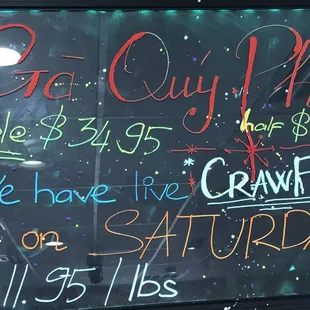 Gà Quý Ph
le $34.95 half $
e have live CRAWF
on SATURDA
11.95 / lbs